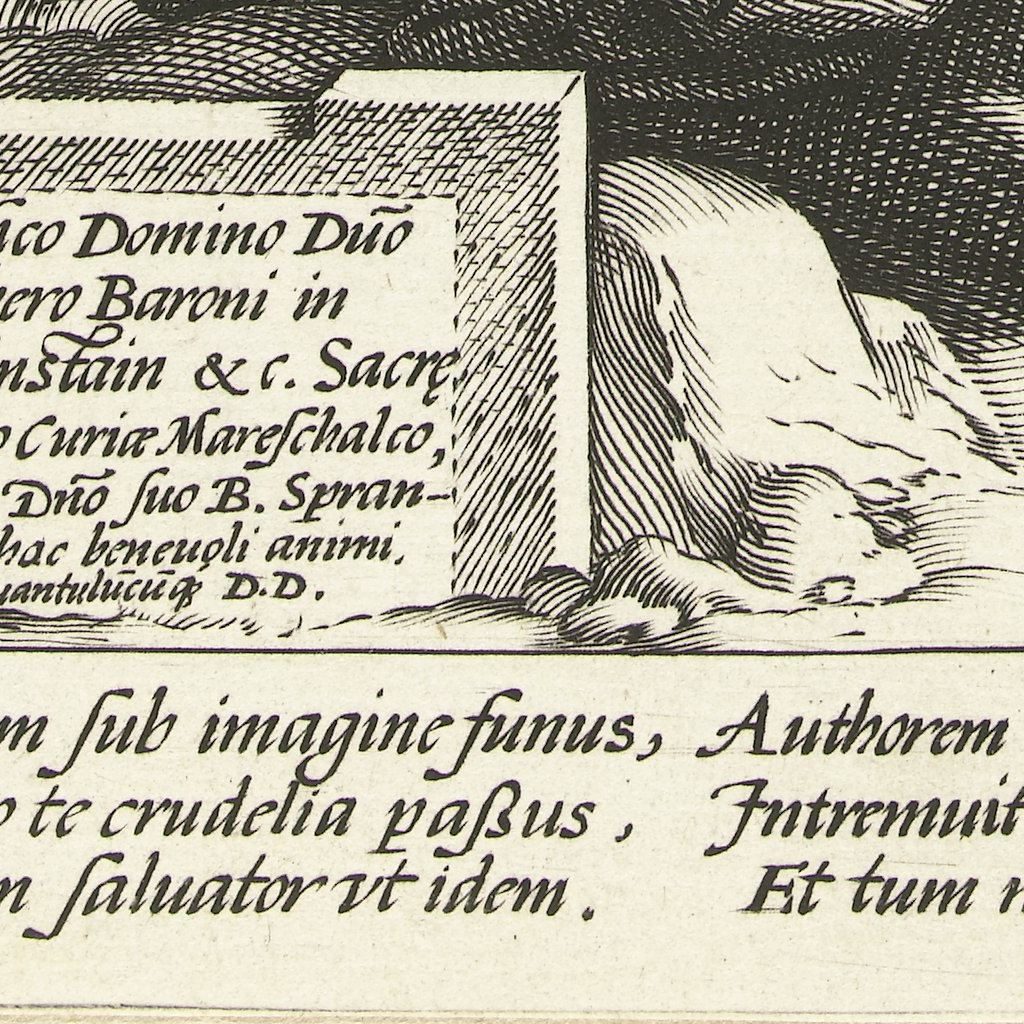 ico Domino Duō
ero Baroni in
nstain & c. Sacrę
o Curiæ Mareſchalco,
Dn̄o ſuo B. Spran-
hac beneuoli animi.
uantulūcūqꝫ D.D.
m ſub imagine funus, Authorem
o te crudelia paßus, Intremuit
n ſaluator vt idem. Et tum n